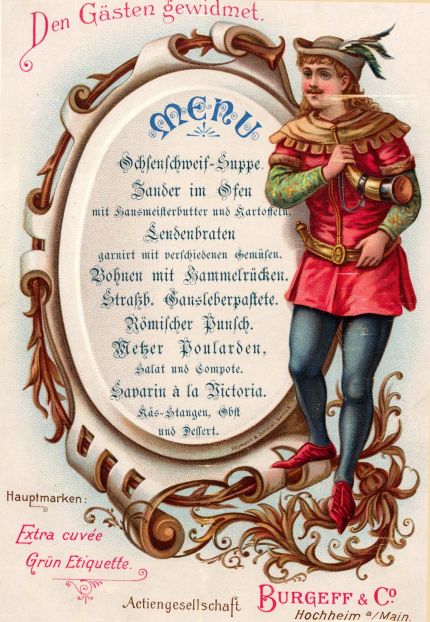 Den Gästen gewidmet.
MENU
Ochsenschweif-Suppe.
Zander im Ofen
mit Hausmeisterbutter und Kartoffeln.
Lendenbraten
garnirt mit verschiedenen Gemüsen.
Bohnen mit Hammelrücken.
Straßb. Gansleberpastete.
Römischer Punsch.
Metzer Poularden,
Salat und Compote.
Savarin à la Victoria.
Käs-Stangen, Obst
und Dessert.
Hauptmarken:
Extra cuvée
Grün Etiquette.
Actiengesellschaft BURGEFF & Co.
Hochheim a/Main.